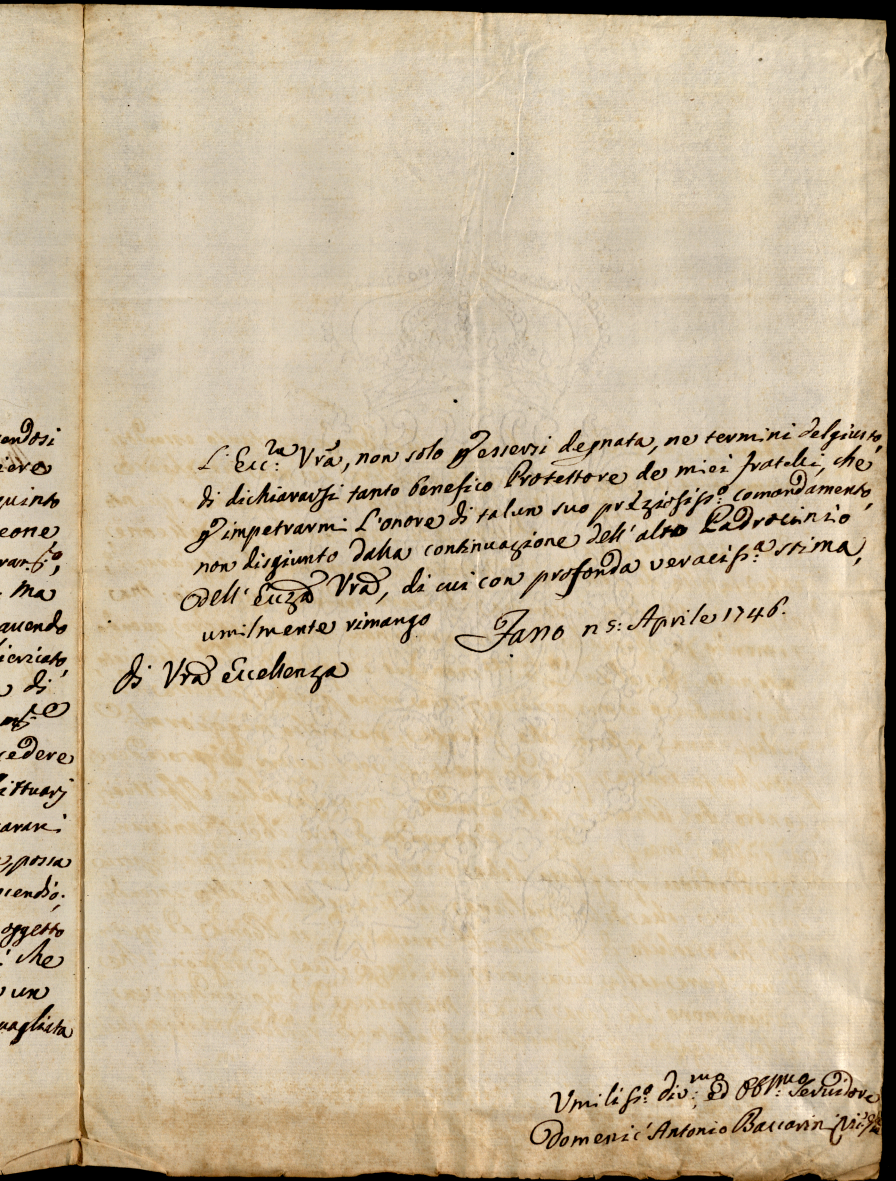 endosi
iere
quinto
eone,
ran.fo,
ma
avendo
iericato,
di
cedere
ittuarj
arari
e, possa
cendio;
oggetto
: che
un
uaglista
L'Ecc.za Vrã, non solo p essersi degnata, ne termini del giusto,
di dichiararsi tanto benefico Protettore de miei fratelli, che
p impetrarmi L'onore di talun suo preziosiss.o comandamento,
non disgiunto dalla continuazione dell'alto Padrocinio
dell'Eccza Vrã, di cui con profonda veraciss.a stima,
umilmente rimango Fano n 5: Aprile 1746.
di Vrã Eccellenza
Umiliss.o div.mo, ed Obb.mo Servidore
Domenic' Antonio Baccarini